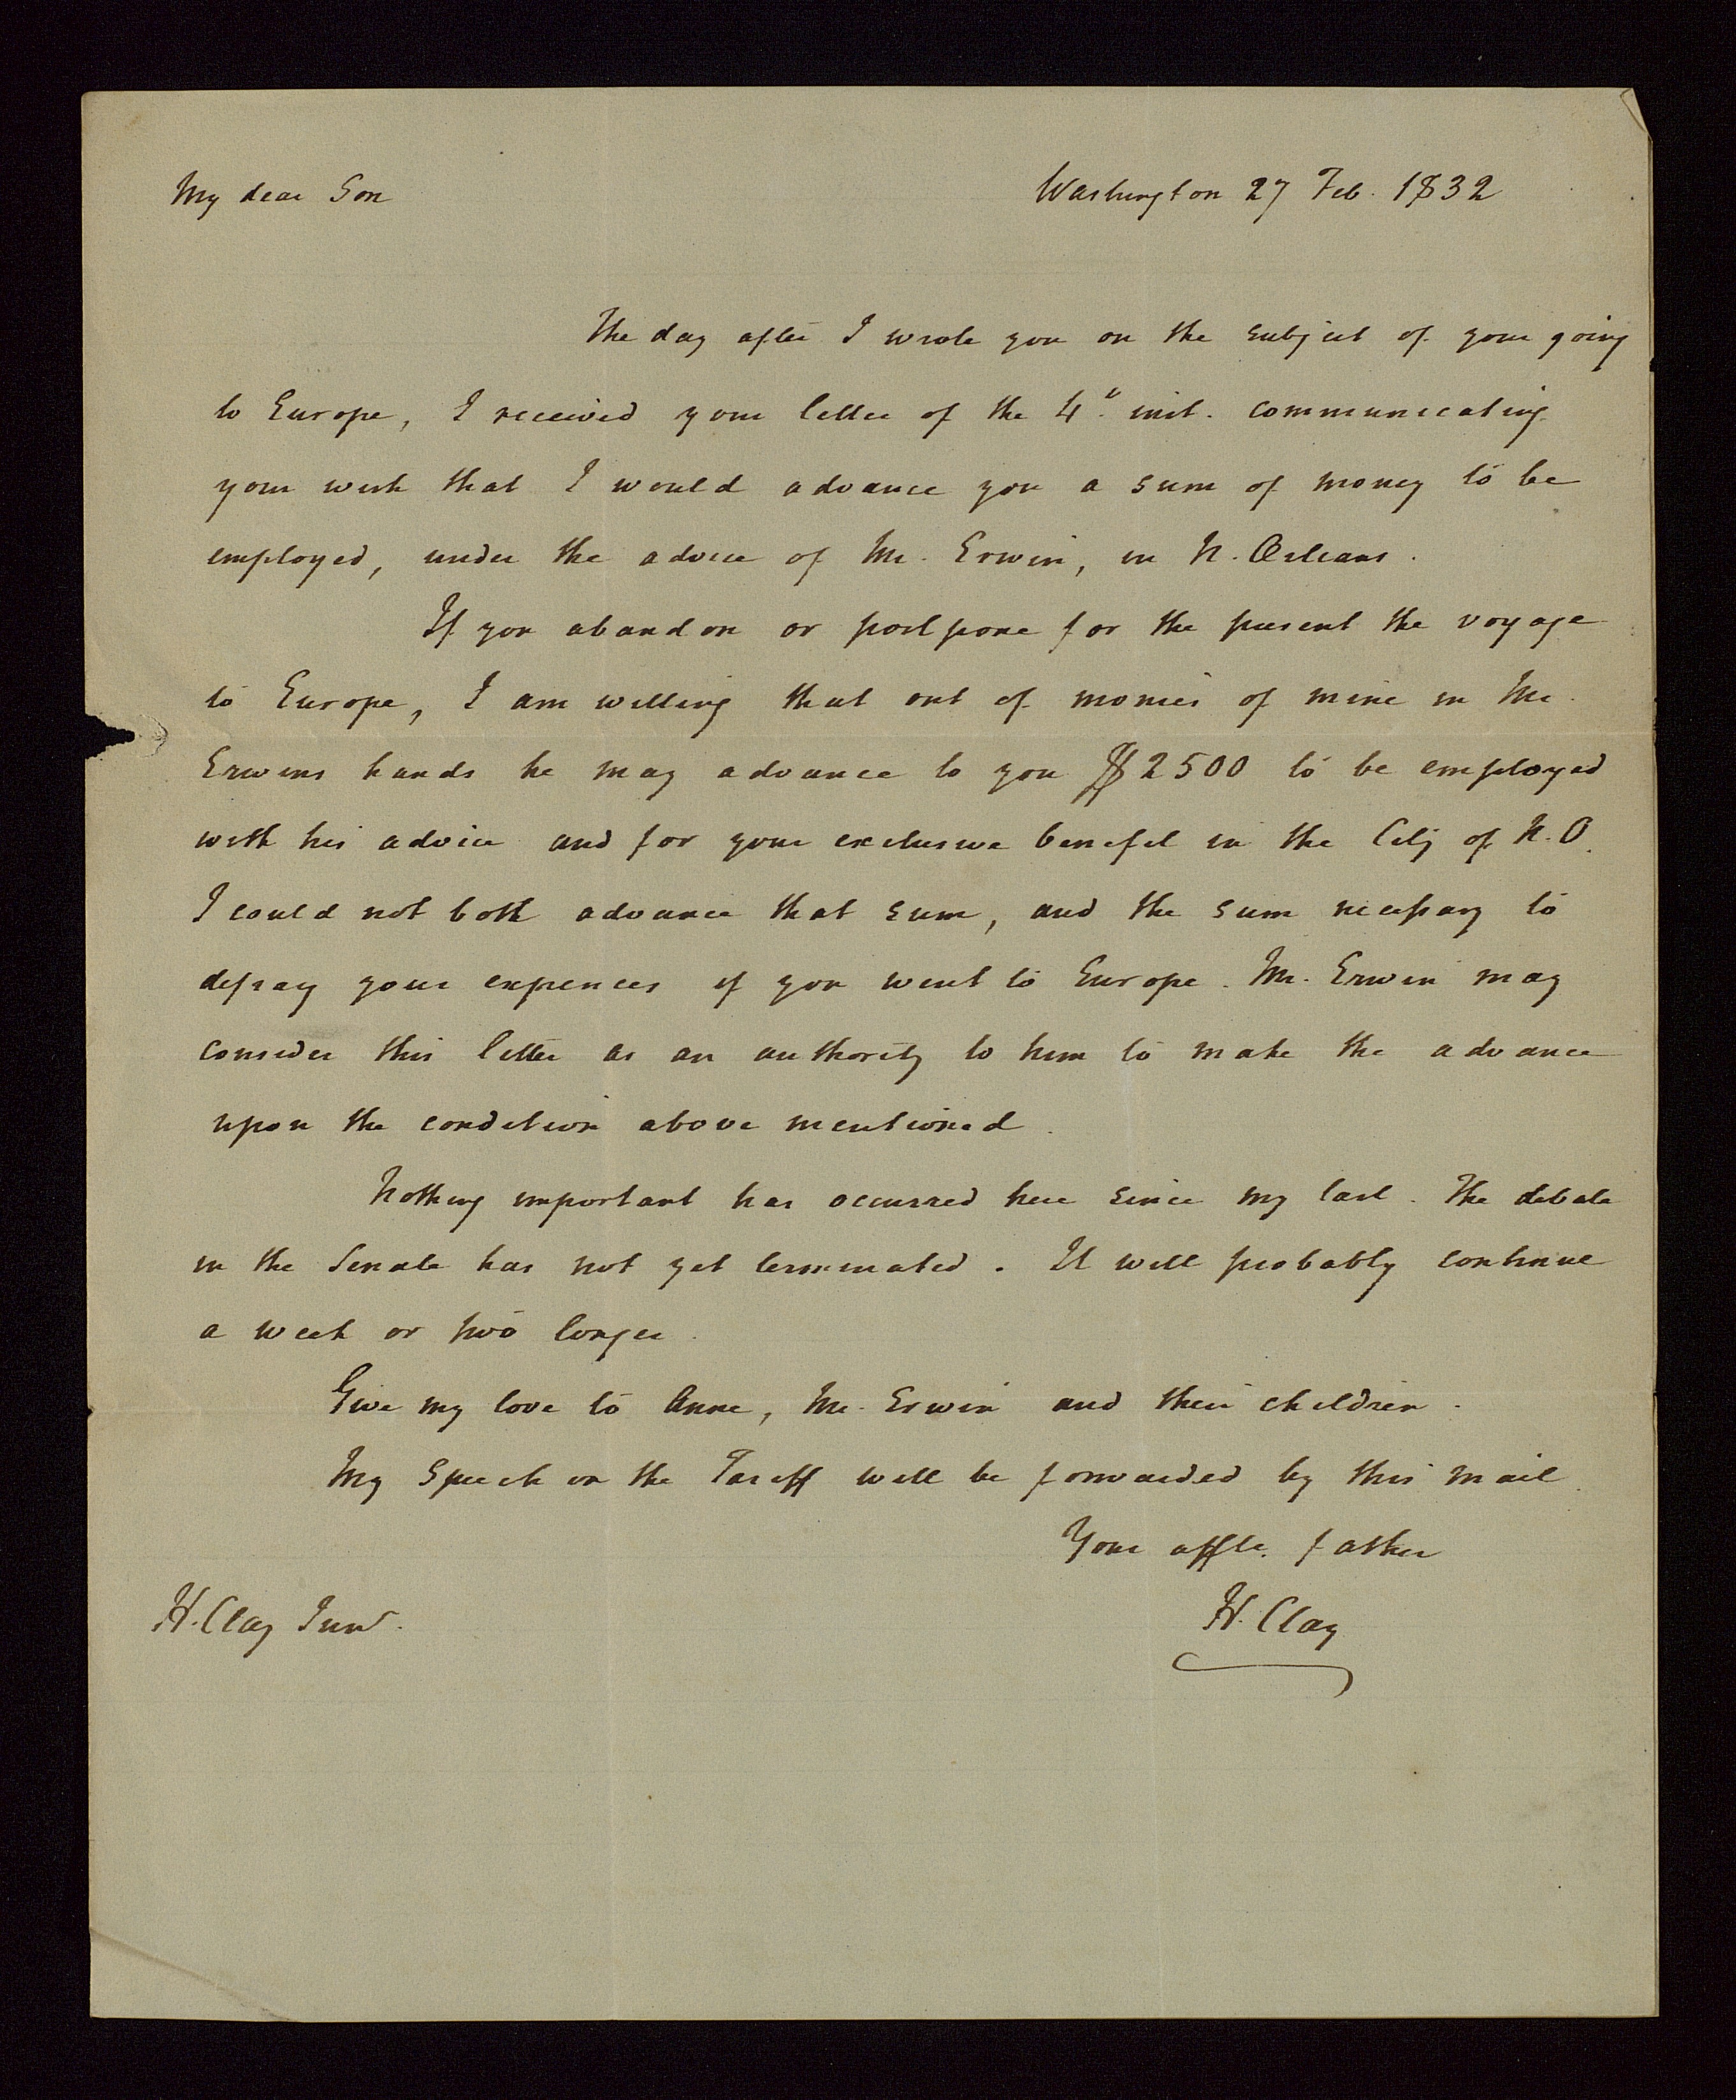 My dear Son
Washington 27 Feb. 1832
The day after I wrote you on the subject of your going
to Europe, I received your letter of the 4h. inst. communicating
your wish that I would advance you a sum of money to be
employed, under the advice of Mr. Erwin, in N. Orleans.
If you abandon or postpone for the present the voyage
to Europe, I am willing that out of monies of mine in Mr.
Erwins hands he may advance to you $2500 to be employed
with his advice and for your exclusive benefit in the City of N.O.
I could not both advance that sum, and the sum necessary to
defray your expences if you went to Europe. Mr. Erwin may
consider this letter as an authority to him to make the advance
upon the condition above mentioned.
Nothing important has occurred here since my last. The debate
in the Senate has not yet terminated. It will probably continue
a week or two longer.
Give my love to Anne, Mr. Erwin and their children.
My Speech on the Tariff will be forwarded by this mail.
Your affte. father
H. Clay
H. Clay Junr.